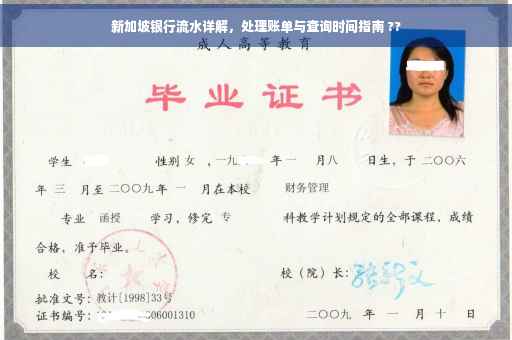 新加坡银行流水详解，处理账单与查询时间指南 ??
成人高等教育
毕业证书
学生 性别 女 ，一九 年 一 月八 日生，于 二〇〇六
年 三 月至 二〇〇九 年 一 月在本校 财务管理
专业 函授 学习，修完 专 科教学计划规定的全部课程，成绩
合格，准予毕业。
校 名： 校（院）长：
批准文号：教计[1998]33号
证书编号： 06001310 二〇〇九 年 一 月 十 日